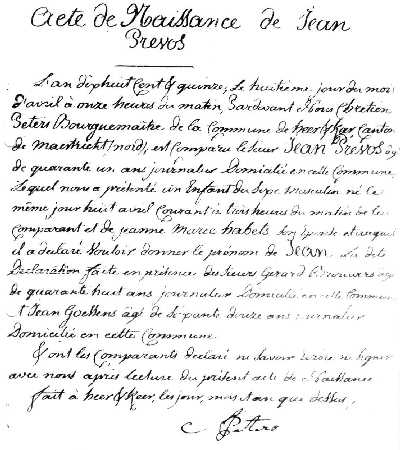 Acte de Naissance de Jean
Prevos
L'an dixhuit Cent & quinze, Le huitieme jour du mois
d'avril à onze heures du matin, Pardevant Nous Chretien
Peters Bourguemaître de la Commune de heer & Keer Canton
de maestricht (nord) est Comparu le sieur Jean Prevos âgé
de quarante un ans journalier Domicilié en cette Commune,
Lequel nous a présenté un Enfant du Sexe Masculin né le
même jour huit avril Courant à trois heures du matin de lui
Comparant et de jeanne Marie habets Son Epouse et auquel
il a declaré Vouloir donner le prénom de Jean. Les dits
Declaration faite en présence des sieurs Gerard Brouwers agé
de quarante huit ans journalier Domicilié en cette Commune
& Jean Goessens âgé de Soixante douze ans journalier
Domicilié en cette Commune.
& ont les Comparants declaré ne Savoir ecrire ni Signer
avec nous après lecture du présent acte de Naissance
fait à heer & Keer, les jour, mois & an que dessus,
C Peters